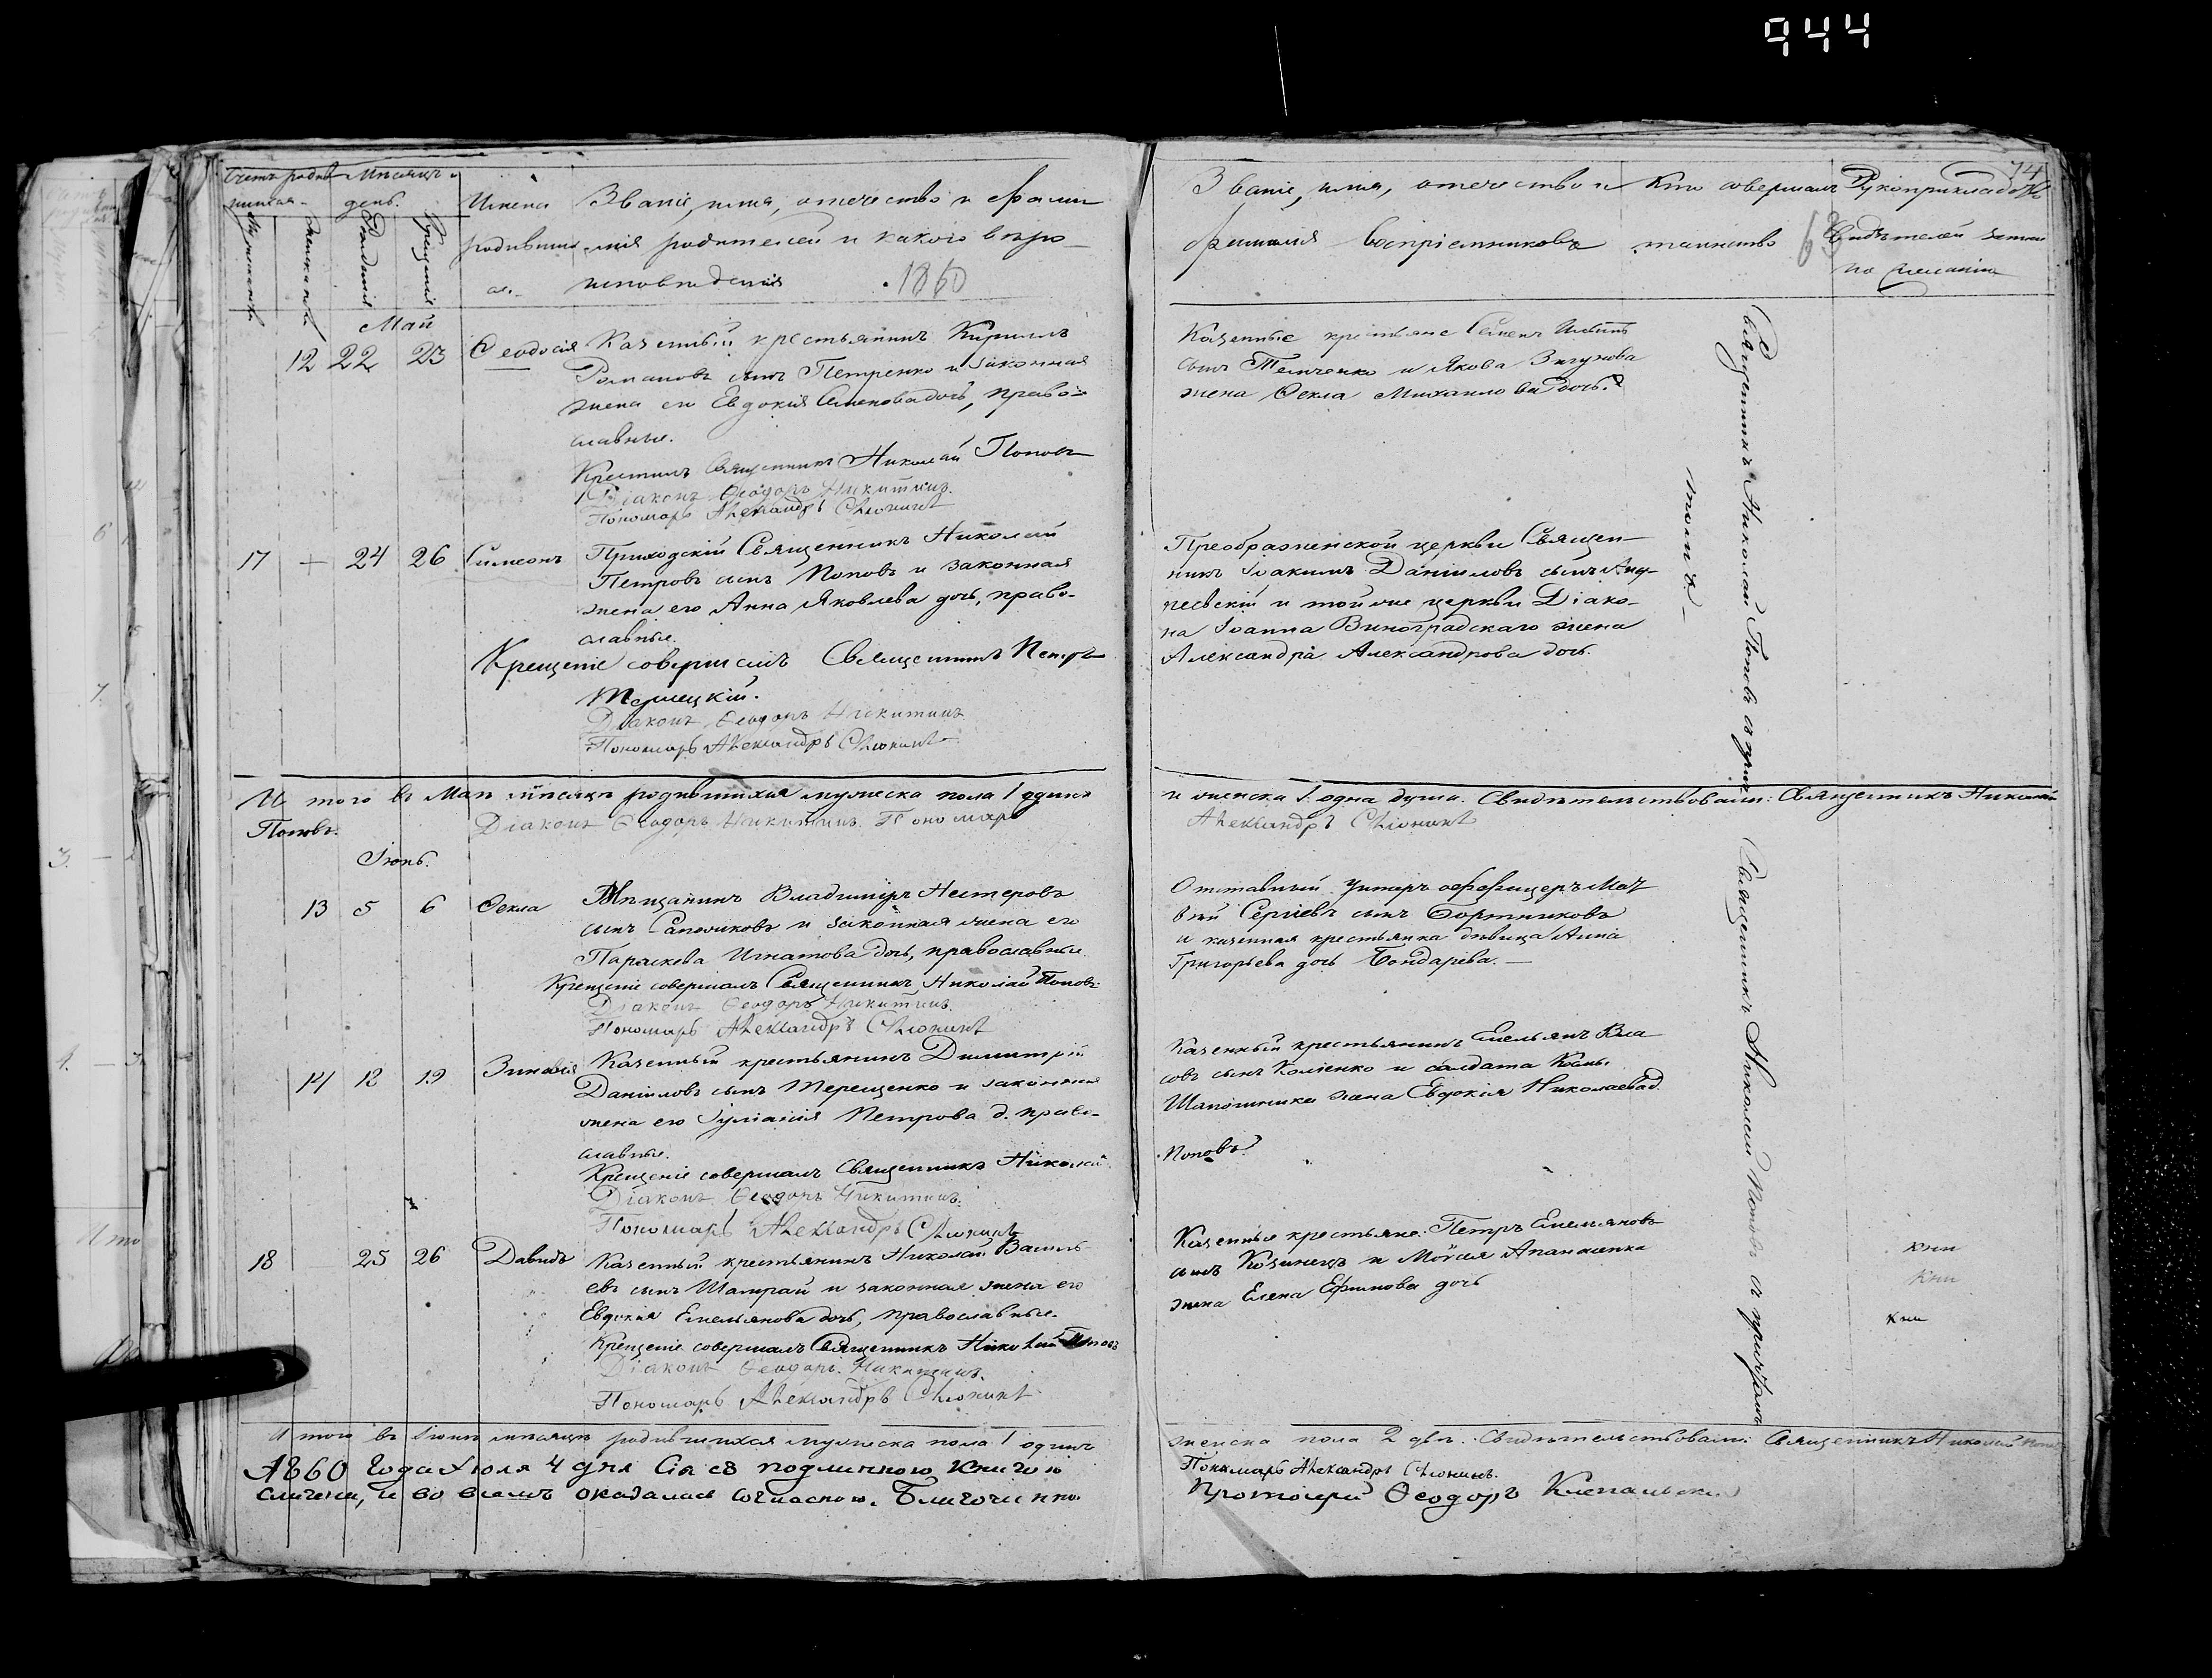 944
74
Счетъ родив- Мѣсяцъ и
шихся. день.
Имена Званіе, имя, отечество и фами
родивших лія родителей и какого вѣро-
ся. исповѣданія 1860
Мужеска
Женска
Рожденія
Крещенія
Званіе, имя, отечество и Кто совершалъ Рукоприкладство
фамилія воспріемниковъ таинство свидѣтелей записи
по желанію
Май
12 22 23 Ѳеодосія Казенный крестьянинъ Кириллъ
Романовъ сынъ Петренко и законная
жена его Евдокія Семенова дочь, право-
славные.
Крестилъ Священникъ Николай Поповъ
Діаконъ Ѳеодоръ Никитинъ.
Пономарь Александръ
Казенные крестьяне Семенъ Ильинъ
сынъ и Якова
жена Ѳекла Михаилова дочь.
17 — 24 26 Симеонъ Приходскій Священникъ Николай
Петровъ сынъ Поповъ и законная
жена его Анна Яковлева дочь, право-
славные.
Крещеніе совершилъ Священникъ Петръ
Терлецкій.
Діаконъ Ѳеодоръ Никитинъ
Пономарь Александръ
Преображенской церкви Священ-
никъ Іоакимъ Даніиловъ сынъ Анд-
реевскій и той же церкви Діако-
на Іоанна Виноградскаго жена
Александра Александрова дочь.
Священникъ Николай Поповъ съ прич-
томъ
И того въ Маѣ мѣсяцѣ родившихся мужеска пола 1 одинъ
и женска 1 одна душа. Свидѣтельствовали: Священникъ Николай
Поповъ. Діаконъ Ѳеодоръ Никитинъ. Пономарь
Александръ
Іюнь.
13 5 6 Ѳекла Мѣщанинъ Владиміръ Нестеровъ
сынъ Сапожниковъ и законная жена его
Параскева Игнатова дочь, православные
Крещеніе совершалъ Священникъ Николай Поповъ.
Діаконъ Ѳеодоръ Никитинъ.
Пономарь Александръ
Отставный унтеръ оффицеръ Мат
вѣй Сергіевъ сынъ Бортниковъ
и казенная крестьянка дѣвица Анна
Григорьева дочь Бондарева. —
14 18 19 Зиновія Казенный крестьянинъ Димитрій
Даніиловъ сынъ Терещенко и законная
жена его Іуліанія Петрова д. право-
славные.
Крещеніе совершалъ Священникъ Николай
Поповъ.
Діаконъ Ѳеодоръ Никитинъ.
Пономарь Александръ
Казенный крестьянинъ Емельянъ Вла
совъ сынъ и салдата
Шапошника жена Евдокія Николаева д.
18 25 26 Давидъ Казенный крестьянинъ Николай Василь
евъ сынъ Шамрай и законная жена его
Евдокія Емельянова дочь, православные.
Крещеніе совершалъ Священникъ Николай Поповъ
Діаконъ Ѳеодоръ Никитинъ.
Пономарь Александръ
Казенные крестьяне: Петръ Емельяновъ
сынъ Козинецъ и Моѵсея Апанасенка
жена Елена Ефимова дочь
Священникъ Николай Поповъ съ причтомъ
И того въ Іюнѣ мѣсяцѣ родившихся мужеска пола 1 одинъ
женска пола 2 двѣ. Свидѣтельствовали: Священникъ Николай Поповъ
Пономарь Александръ
1860 года Іюля 4 дня Сія съ подлинною книгою
сличена, и во всемъ оказалась согласною. Благочинный
Протоіерей Ѳеодоръ